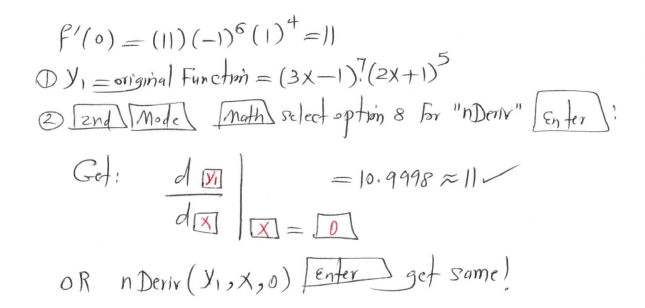 f'(0) = (11)(-1)⁶(1)⁴ = 11
① y₁ = original Function = (3x-1)⁷(2x+1)⁵
② 2nd Mode Math select option 8 for "nDeriv" Enter :
Get: d y₁ / d x | x = 0 = 10.9998 ≈ 11 ✓
OR nDeriv(y₁, x, 0) Enter get same!